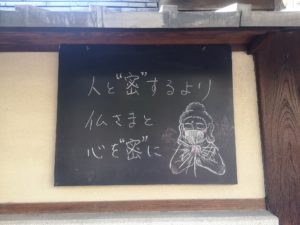 人と"密"するより
仏さまと
心を"密"に